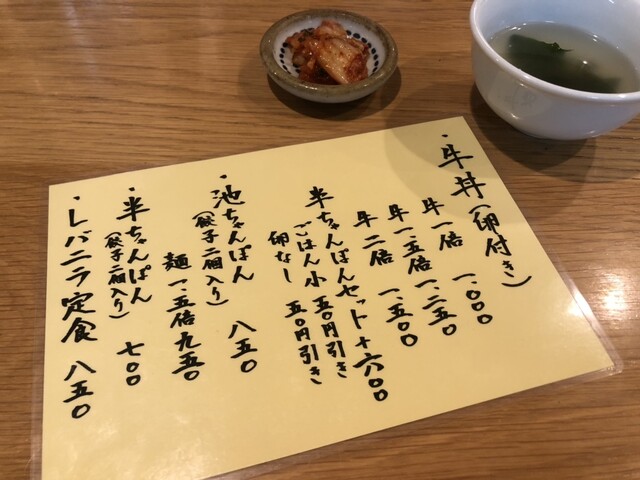 ・牛丼(卵付き)
牛一倍 一、〇〇〇
牛一、五倍 一、二五〇
牛二倍 一、五〇〇
半ちゃんぽんセット+六〇〇
ごはん小 五〇円引き
卵なし 五〇円引き
・池ちゃんぽん 八五〇
(餃子二個入り)
麺一、五倍九五〇
・半ちゃんぽん 七〇〇
(餃子二個入り)
・レバニラ定食 八五〇